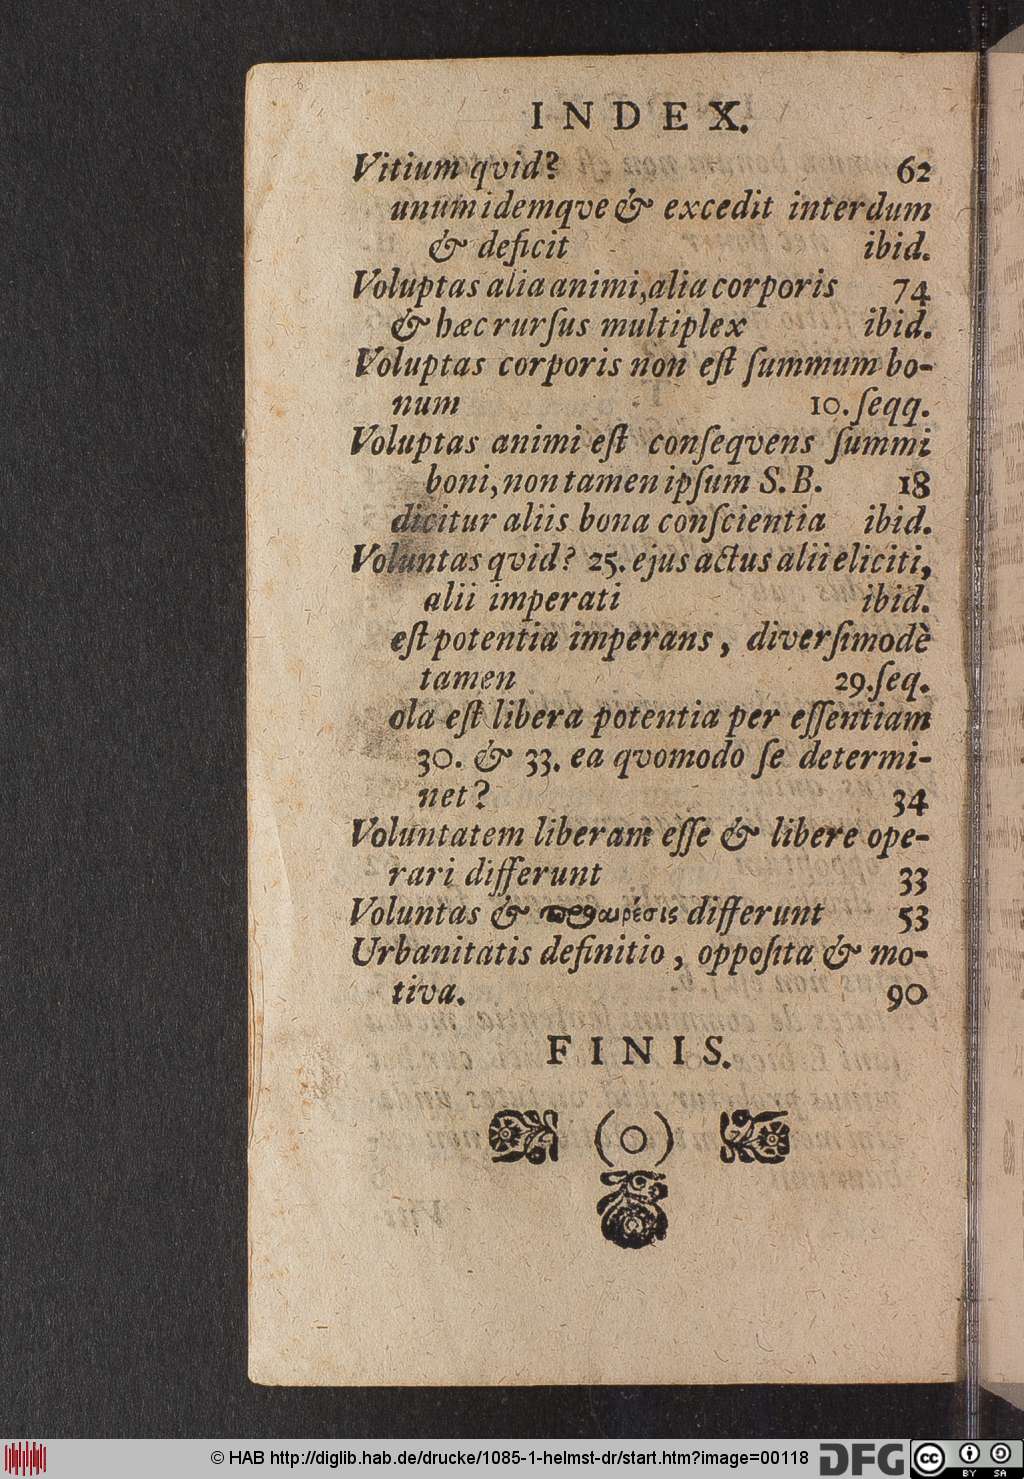 INDEX.
Vitium qvid? 62
unum idemqve & excedit interdum
& deficit ibid.
Voluptas alia animi, alia corporis 74
& hæc rurſus multiplex ibid.
Voluptas corporis non eſt ſummum bo-
num 10. ſeqq.
Voluptas animi eſt conſeqvens ſummi
boni, non tamen ipſum S. B. 18
dicitur aliis bona conſcientia ibid.
Voluntas qvid? 25. ejus actus alii eliciti,
alii imperati ibid.
eſt potentia imperans, diverſimodè
tamen 29. ſeq.
ola eſt libera potentia per eſſentiam
30. & 33. ea qvomodo ſe determi-
net? 34
Voluntatem liberam eſſe & libere ope-
rari differunt 33
Voluntas & προαιρέσις differunt 53
Urbanitatis definitio, oppoſita & mo-
tiva. 90
FINIS.
(o)
© HAB http://diglib.hab.de/drucke/1085-1-helmst-dr/start.htm?image=00118 DFG cc BY SA